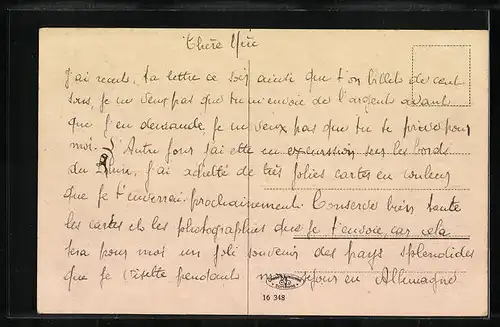 Chère Mère
J'ai recuts, ta lettre ce soir ainsi que ton billet de cent
sous, Je ne veus pas que tu m'envoie de l'argent avant
que j'en demande, Je ne veux pas que tu te prive pour
moi. L'Autre jour j'ai ette en excurssion sur les bords
du Rhin, j'ai acheté de très jolies cartes en couleurs
que je t'enverrai prochainement. Conserve bien toute
les cartes et les photographies que je t'envoie, car cela
sera pour moi un joli souvenir des pays splendides
que je visitte pendant mon séjour en Allemagne
16 348